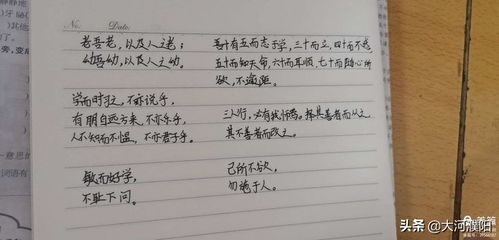 No.
Date.
老吾老，以及人之老；
幼吾幼，以及人之幼。
吾十有五而志于学，三十而立，四十而不惑
五十而知天命，六十而耳顺，七十而随心所
欲，不逾矩。
学而时习之，不亦说乎，
有朋自远方来，不亦乐乎，
人不知而不愠，不亦君子乎。
三人行，必有我师焉。择其善者而从之
其不善者而改之。
敏而好学，
不耻下问。
己所不欲，
勿施于人。
头条 @大河濮阳